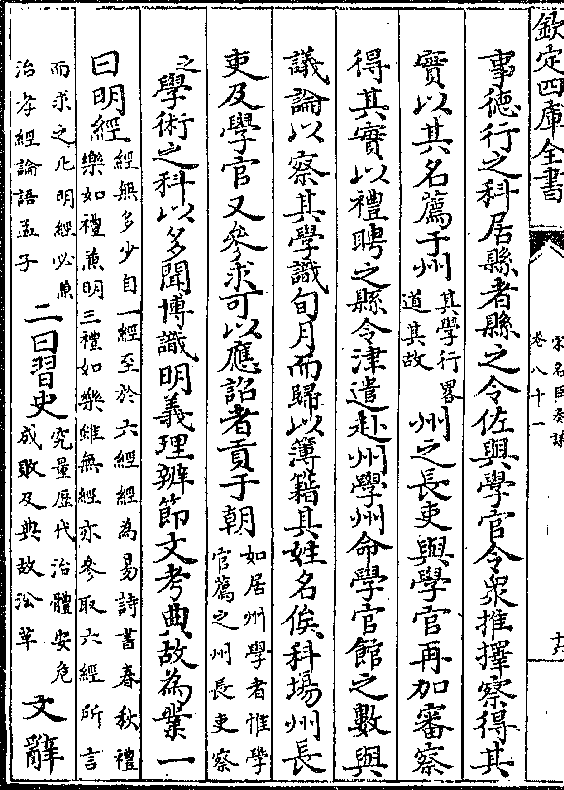 欽定四庫全書
宋名臣奏議
卷八十一
十六
事德行之科居縣者縣之令佐與學官令衆推擇察得其
實以其名薦于州其學行畧道其故州之長吏與學官再加審察
得其實以禮聘之縣令津遣赴州學州命學官館之數與
議論以察其學識旬月而歸以簿籍具姓名俟科塲州長
吏及學官又參求可以應詔者貢于朝如居州學者惟學官薦之州長吏察
之學術之科以多聞博識明義理辨節文考典故為業一
曰明經經無多少自一經至於六經經為易詩書春秋禮樂如禮兼明三禮如樂雖無經亦參取六經所言
而求之凡明經必兼治孝經論語孟子二曰習史究量歴代治體安危成敗及典故沿革文辭